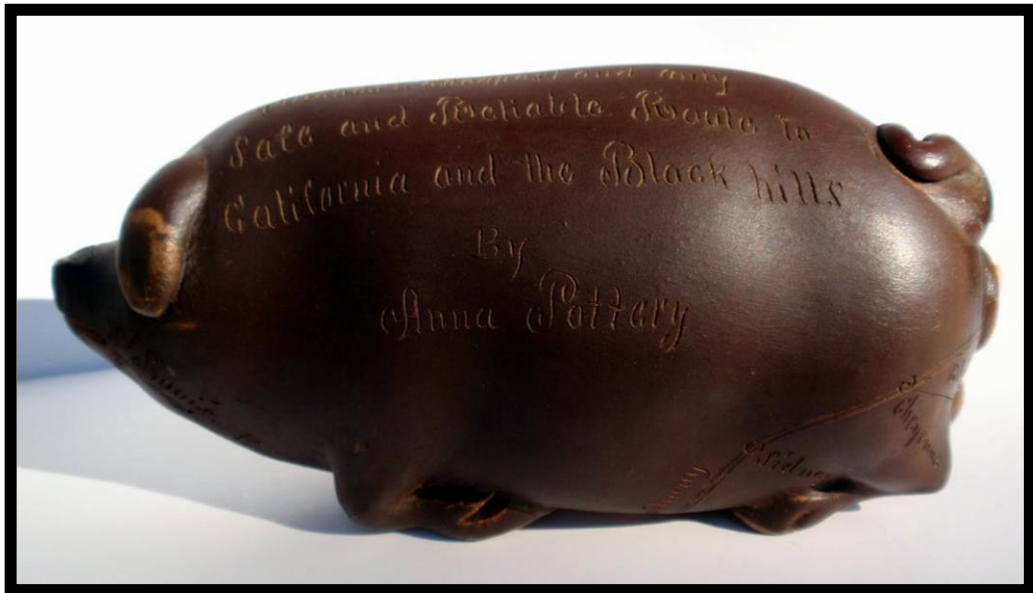 and any
Safe and Reliable Route to
California and the Black hills
By
Anna Pottery
Sidney
Cheyenne